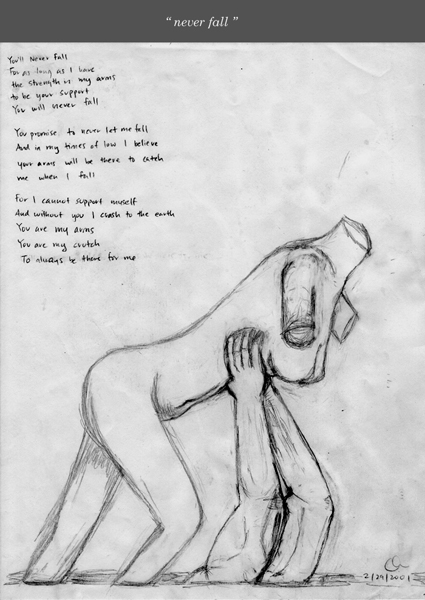 “ never fall ”
You'll Never Fall
For as long as I have
the strength in my arms
to be your support
You will never fall
You promise to never let me fall
And in my times of low I believe
your arms will be there to catch
me when I fall
For I cannot support myself
And without you I crash to the earth
You are my arms
You are my crutch
To always be there for me
2/29/2001